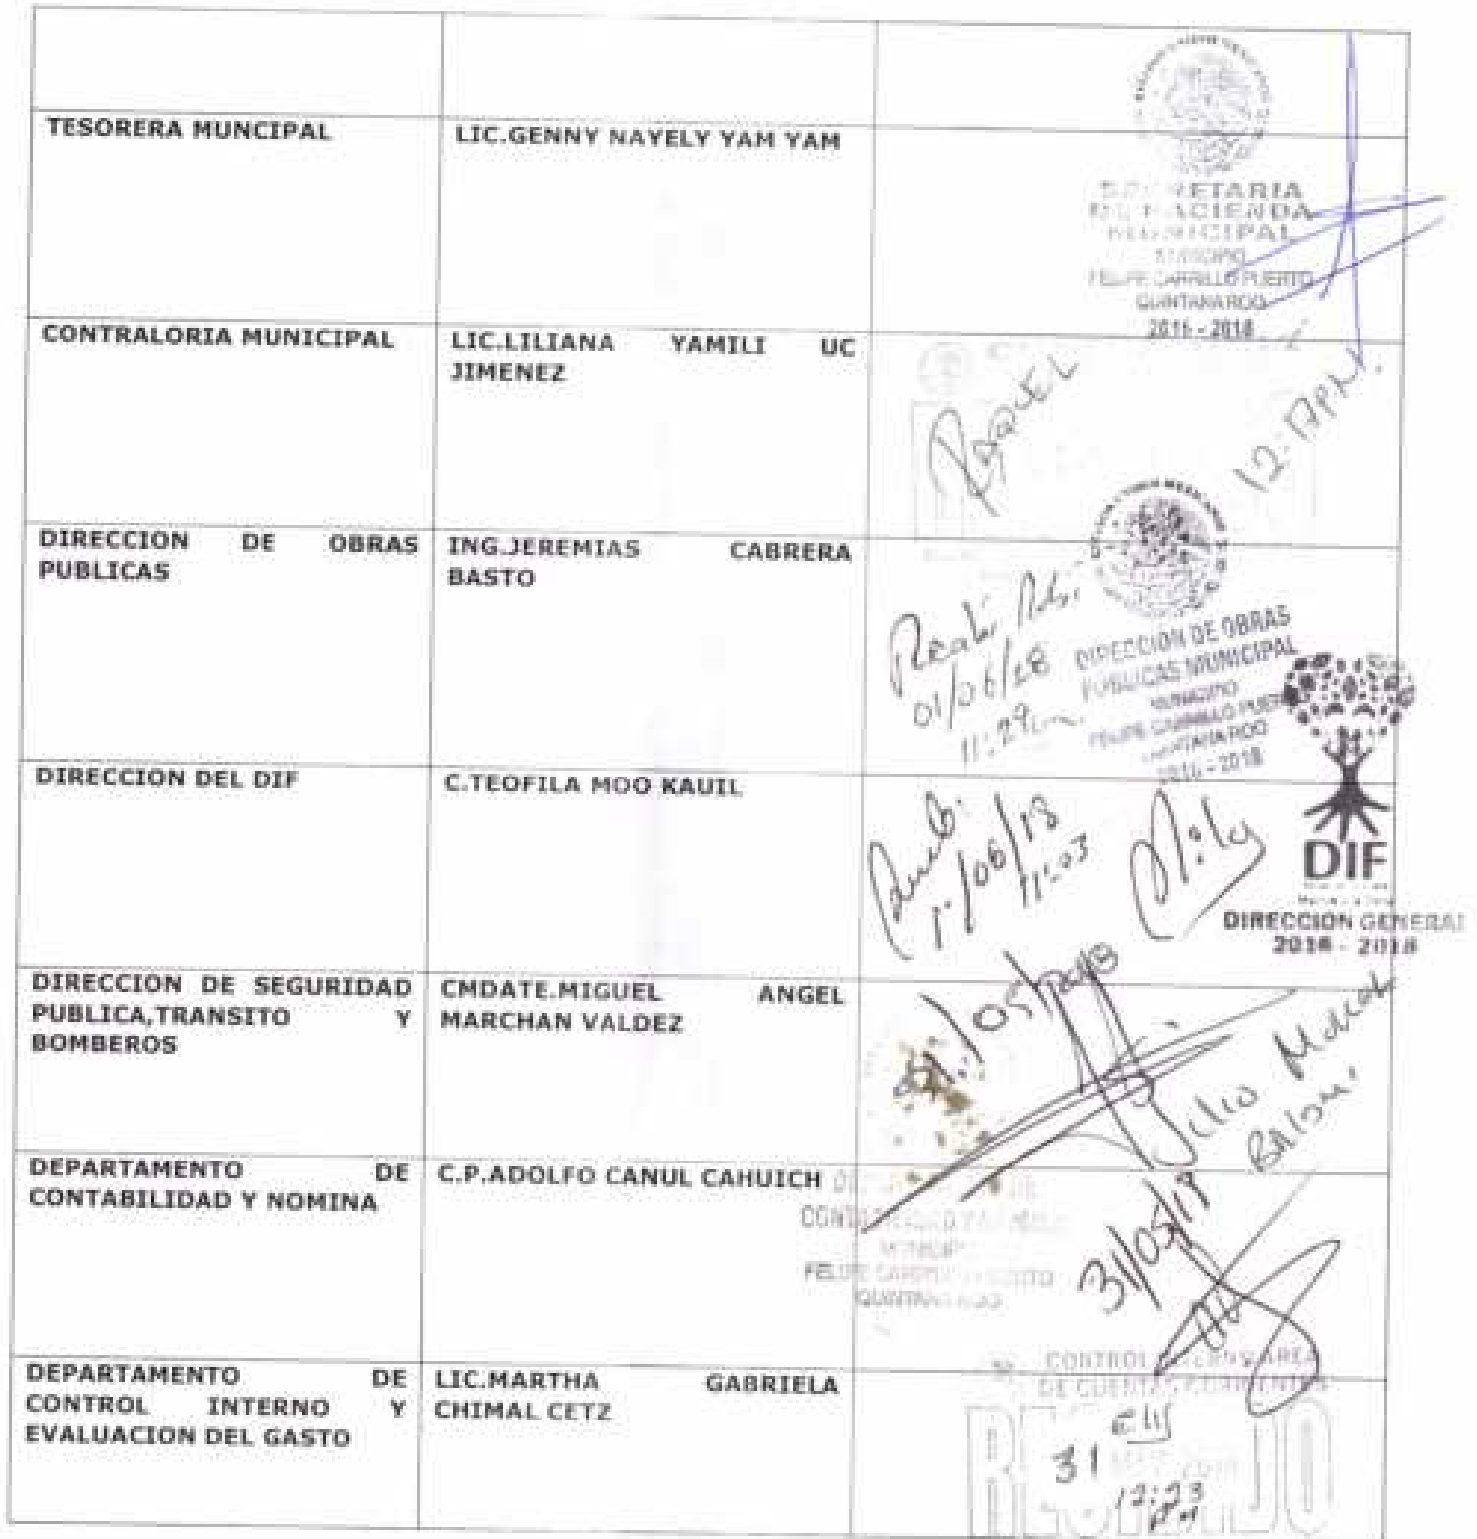 TESORERA MUNCIPAL
LIC.GENNY NAYELY YAM YAM
SECRETARIA
DE HACIENDA
MUNICIPAL
MUNICIPIO
FELIPE CARRILLO PUERTO
QUINTANA ROO
2016 - 2018
CONTRALORIA MUNICIPAL
LIC.LILIANA YAMILI UC
JIMENEZ
RAQUEL
DIRECCION DE OBRAS
PUBLICAS
ING.JEREMIAS CABRERA
BASTO
01/06/18
11:29
DIRECCION DE OBRAS
PUBLICAS MUNICIPAL
MUNICIPIO
FELIPE CARRILLO PUERTO
QUINTANA ROO
2016 - 2018
DIRECCION DEL DIF
C.TEOFILA MOO KAUIL
1°/06/18
11:03
DIF
DIRECCION GENERAL
2016 - 2018
DIRECCION DE SEGURIDAD
PUBLICA,TRANSITO Y
BOMBEROS
CMDATE.MIGUEL ANGEL
MARCHAN VALDEZ
DEPARTAMENTO DE
CONTABILIDAD Y NOMINA
C.P.ADOLFO CANUL CAHUICH
MUNICIPIO
FELIPE CARRILLO PUERTO
QUINTANA ROO
31/05/18
DEPARTAMENTO DE
CONTROL INTERNO Y
EVALUACION DEL GASTO
LIC.MARTHA GABRIELA
CHIMAL CETZ
CONTROL INTERNO AREA
DE CUENTAS CORRIENTES
RECIBIDO
31
12:23
PM